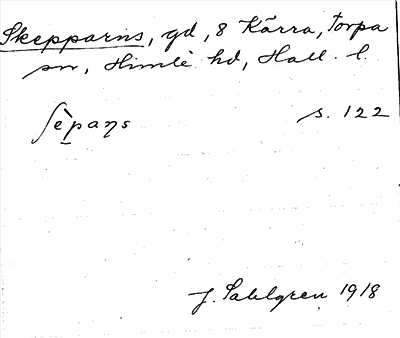 Skepparns, gd, 8 Kärra, Torpa
sn, Himle hd, Hall. l.
ʃèpaƞs s. 122
J. Sahlgren 1918